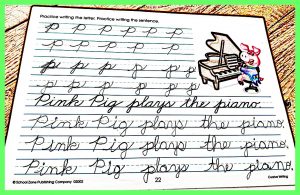 Practice writing the letter. Practice writing the sentence.
P P P P P P
P P P P P P
p p p p p p p
p p p p p p p
Pink Pig plays the piano.
Pink Pig plays the piano.
Pink Pig plays the piano.
Pink Pig plays the piano.
© School Zone Publishing Company 22 Cursive Writing